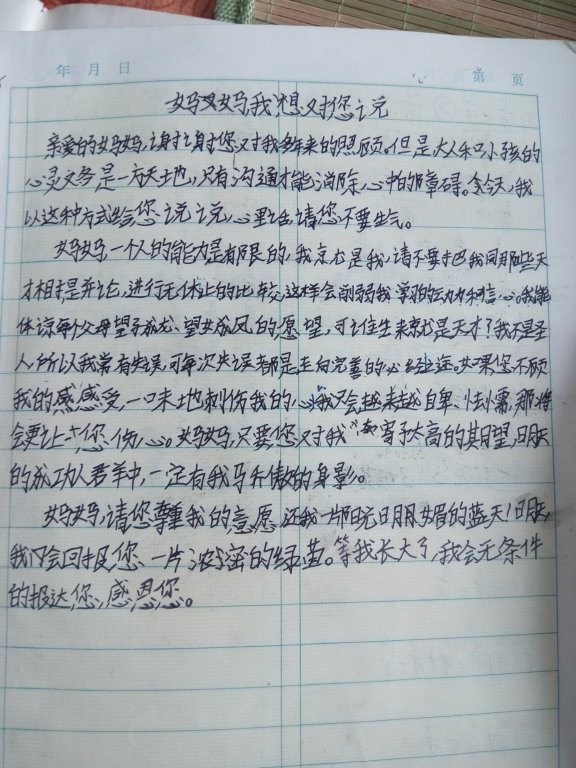 年 月 日 第 页
妈妈我想对您说
亲爱的妈妈,谢谢您对我多年来的照顾。但是大人和小孩的
心灵交务是一方天地,只有沟通才能消除心中的障碍。今天,我
以这种方式给您说说心里话,请您不要生气。
妈妈,一个人的能力是有限的,我就是我,请不要把我同那些天
才相提并论,进行无休止的比较,这样会削弱我学习的动力和信心。我能
体谅每个父母望子成龙、望女成凤的愿望,可谁生来就是天才?我不是圣
人,所以我常有失误,可每次失误都是走向完善的必经之途。如果您不顾
我的感感受,一口味地刺伤我的心,我只会越来越自卑、怯懦,那将
会更让您伤心。妈妈,只要您对我寄予太高的期望,明天
的成功人群羊中,一定有我骄傲的身影。
妈妈,请您尊重我的意愿,还我一片阳光明媚的蓝天!明天,
我只会回报您一片浓密的绿茵。等我长大了,我会无条件
的报达您,感恩您。